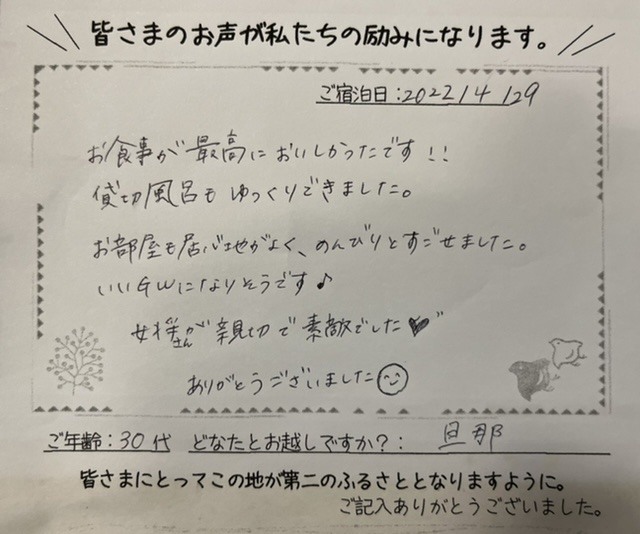 皆さまのお声が私たちの励みになります。
ご宿泊日:2022/4/29
お食事が最高においしかったです!!
貸切風呂もゆっくりできました。
お部屋も居心地がよく、のんびりとすごせました。
いいGWになりそうです♪
女将さんが親切で素敵でした♥
ありがとうございました☺
ご年齢:30代 どなたとお越しですか?: 旦那
皆さまにとってこの地が第二のふるさととなりますように。
ご記入ありがとうございました。